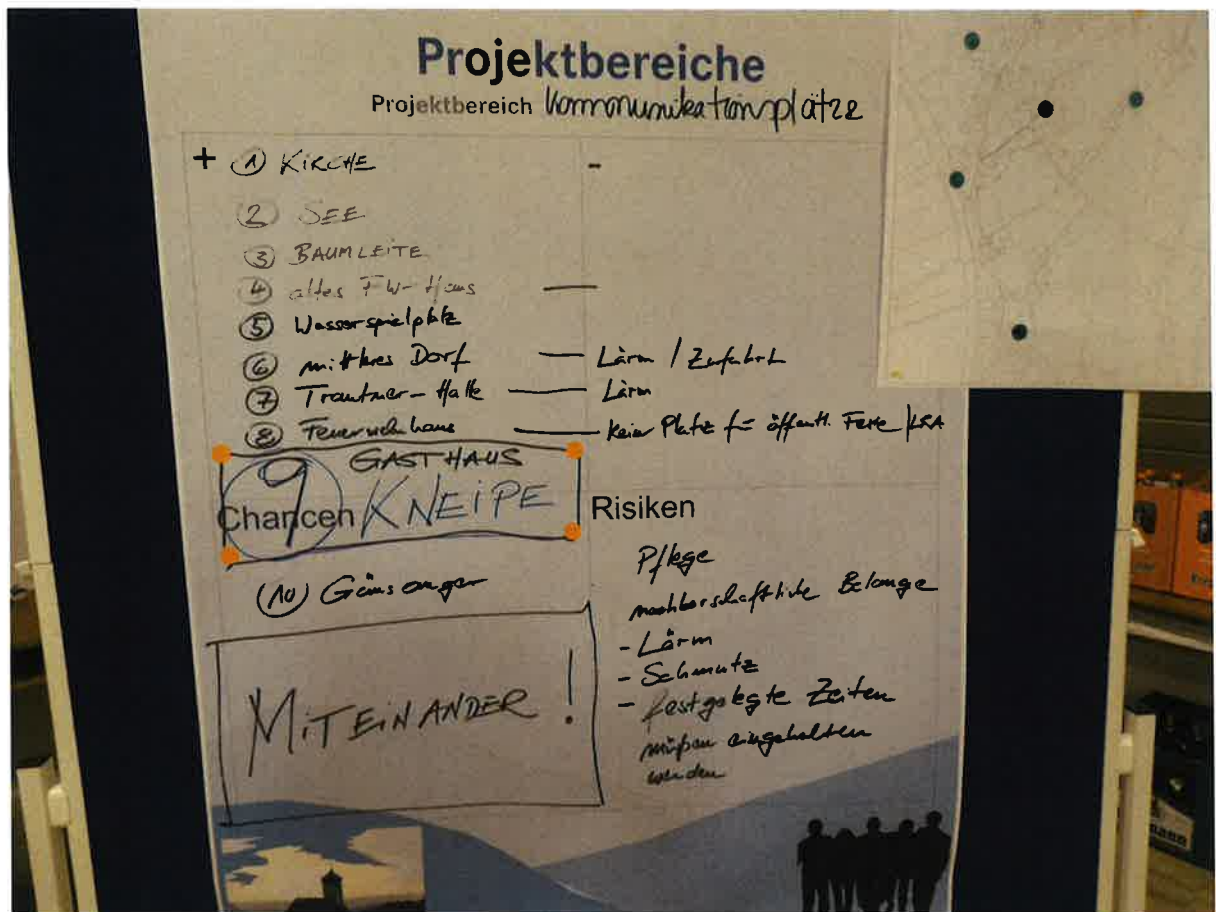 Projektbereiche
Projektbereich Kommunikationsplätze
+ ① KIRCHE -
② SEE
③ BAUMLEITE
④ altes FW-Haus —
⑤ Wasserspielplatz
⑥ mittleres Dorf — Lärm / Zufahrt
⑦ Trautner-Halle — Lärm
⑧ Feuerwehrhaus — kein Platz f= öffentl. Feste / LSA
9 GASTHAUS
KNEIPE
Chancen Risiken
⑩ Gänsanger
Pflege
nachbarschaftliche Belange
- Lärm
- Schmutz
- festgelegte Zeiten
müßen eingehalten
werden
MITEINANDER !